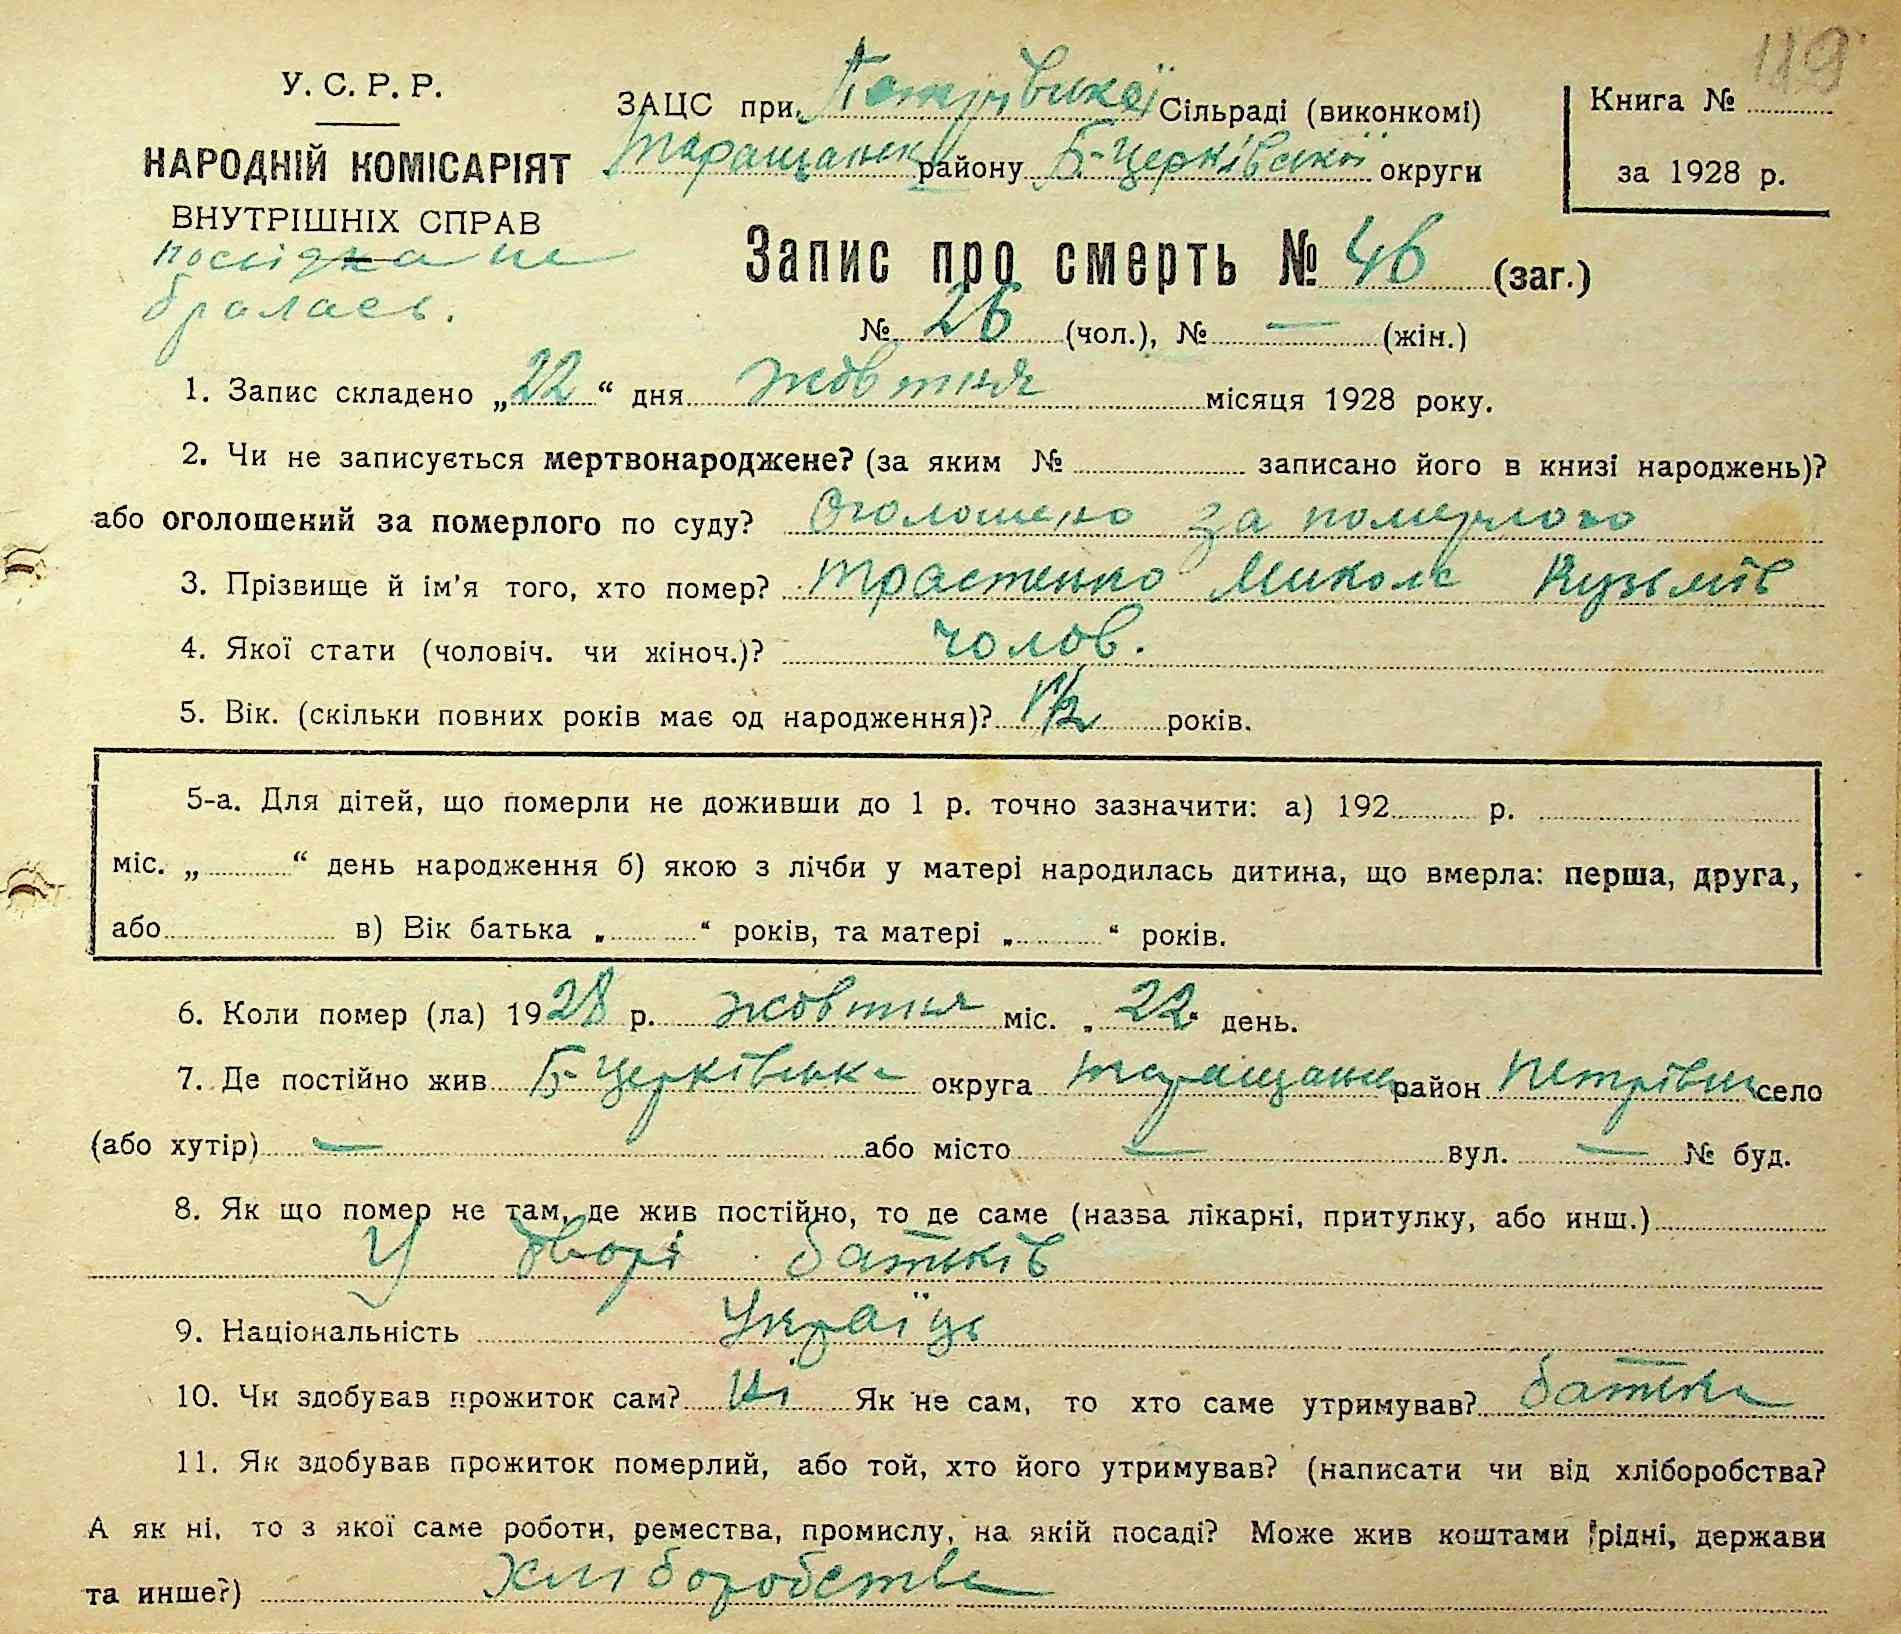 119
У. С. Р. Р.
НАРОДНІЙ КОМІСАРІЯТ
ВНУТРІШНІХ СПРАВ
посідка не
бралась.
ЗАЦС при Петрівській Сільраді (виконкомі)
Таращанськ району Б-Церківської округи
Книга №
за 1928 р.
Запис про смерть № 46 (заг.)
№ 26 (чол.), № — (жін.)
1. Запис складено „22“ дня жовтня місяця 1928 року.
2. Чи не записується мертвонароджене? (за яким № записано його в книзі народжень)?
або оголошений за померлого по суду? Оголошено за померлого
3. Прізвище й ім'я того, хто помер? Трастенко Микола Кузьмів
4. Якої стати (чоловіч. чи жіноч.)? чолов.
5. Вік. (скільки повних років має од народження)? 1½ років.
5-а. Для дітей, що померли не доживши до 1 р. точно зазначити: а) 192 р.
міс. „ “ день народження б) якою з лічби у матері народилась дитина, що вмерла: перша, друга,
або в) Вік батька „ “ років, та матері „ “ років.
6. Коли помер (ла) 1928 р. жовтня міс. „22“ день.
7. Де постійно жив Б-Церківська округа Таращанськ район Петрівка село
(або хутір) — або місто — вул. — № буд.
8. Як що помер не там, де жив постійно, то де саме (назва лікарні, притулку, або инш.)
У дворі батьків
9. Національність Україць
10. Чи здобував прожиток сам? Ні Як не сам, то хто саме утримував? батько
11. Як здобував прожиток померлий, або той, хто його утримував? (написати чи від хліборобства?
А як ні, то з якої саме роботи, ремества, промислу, на якій посаді? Може жив коштами рідні, держави
та инше?) Хліборобства